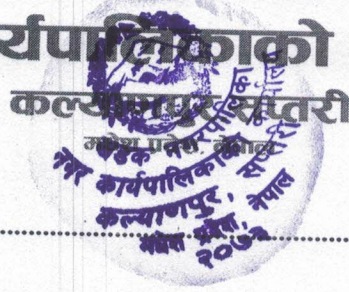 र्यपालिकाको
कल्याणपुर सप्तरी
मधेश प्रदेश, नेपाल
नगरपालिका
नगर कार्यपालिकाको
कल्याणपुर, सप्तरी
मधेश प्रदेश, नेपाल
२०७३